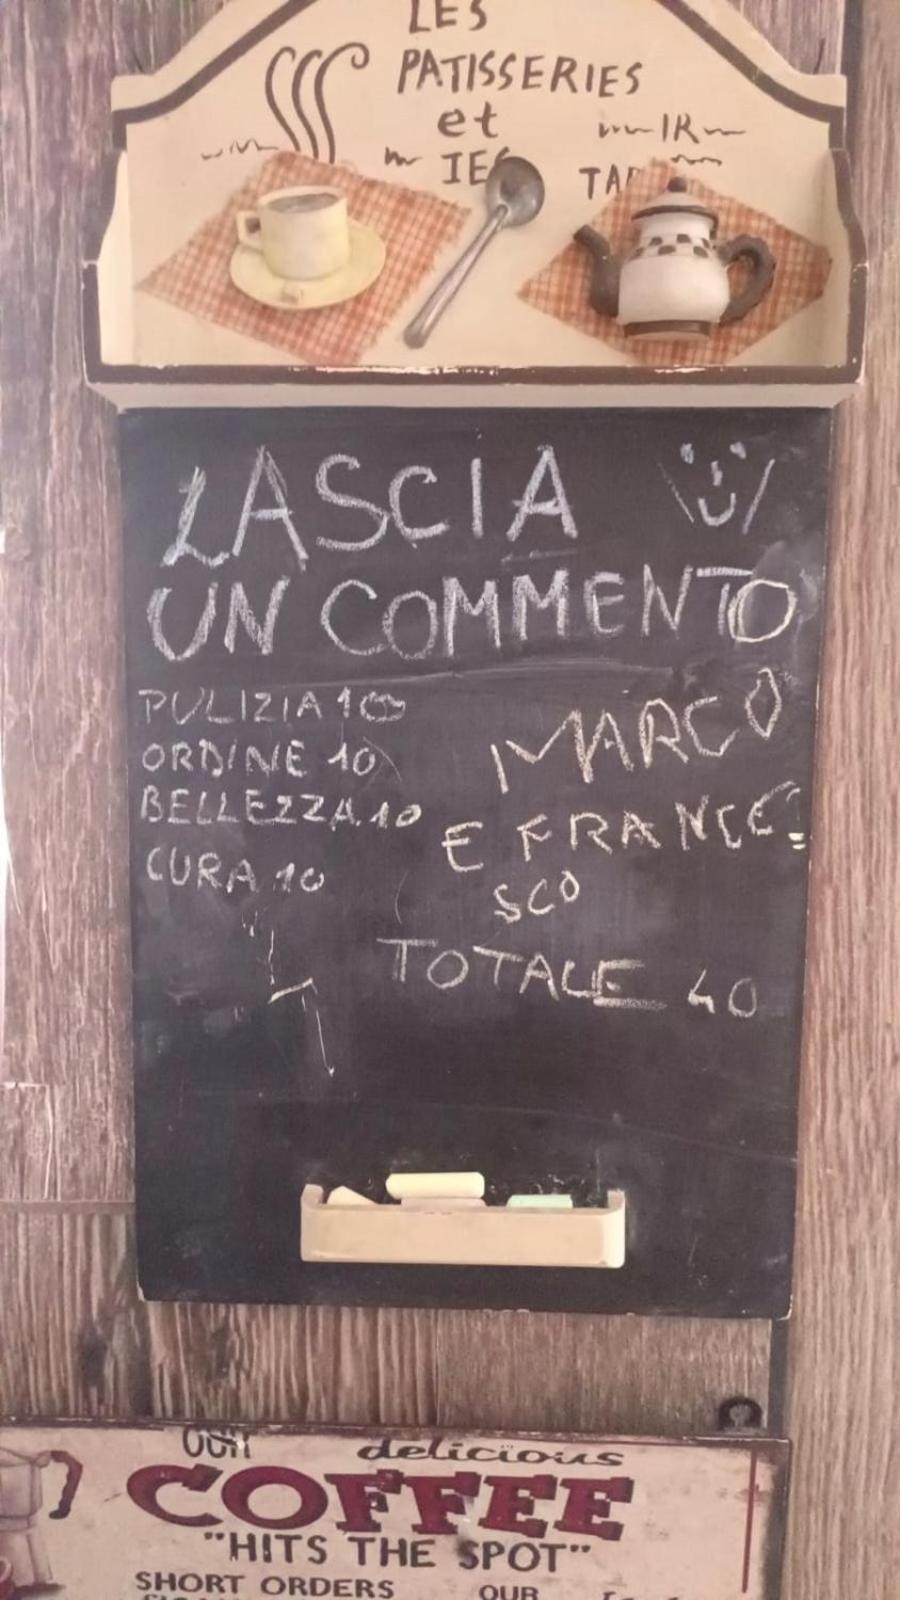 LES
PATISSERIES
et
LASCIA
UN COMMENTO
PULIZIA 10
ORDINE 10
BELLEZZA 10
CURA 10
MARCO
E FRANCE
SCO
TOTALE 40
OUR delicious
COFFEE
"HITS THE SPOT"
SHORT ORDERS OUR